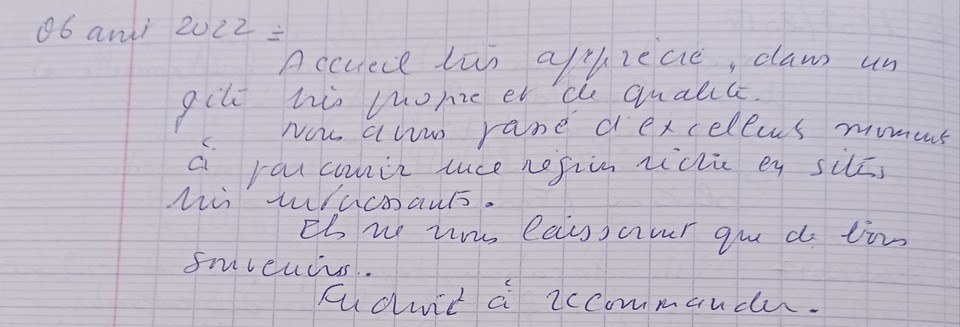 06 avril 2022 =
Accueil très apprécié, dans un
gîte très propre et de qualité.
Nous avons passé d'excellents moments
à parcourir une région riche en sites
très intéressants.
Ils ne nous laisseront que de bons
souvenirs.
Endroit à recommander.